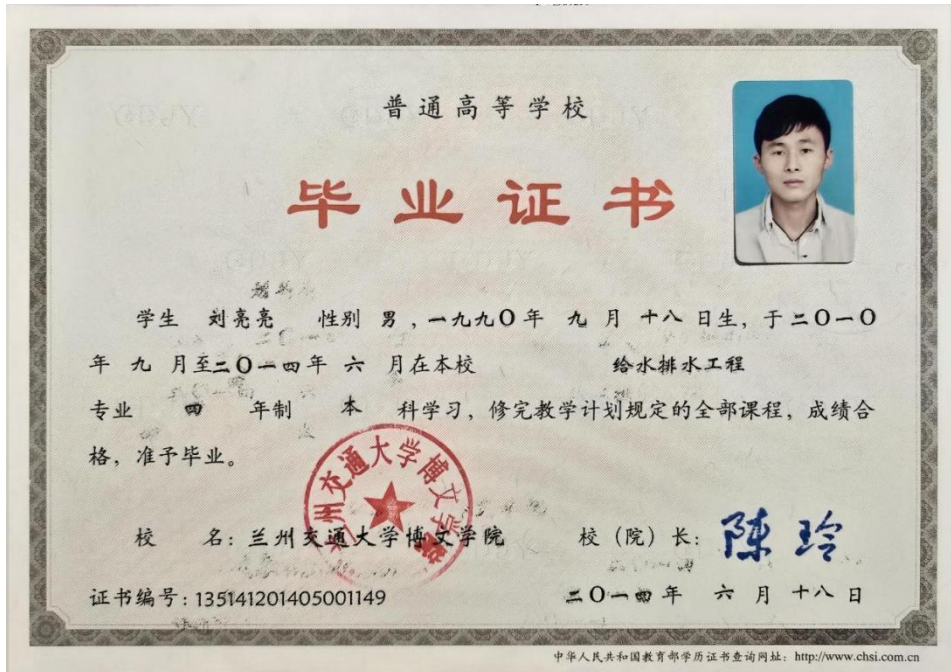 普通高等学校
毕业证书
学生 刘亮亮 性别 男，一九九〇年 九 月 十八 日生，于二〇一〇
年 九 月至二〇一四年 六 月在本校 给水排水工程
专业 四 年制 本 科学习，修完教学计划规定的全部课程，成绩合
格，准予毕业。
兰州交通大学博文学院
校 名：兰州交通大学博文学院 校（院）长：陈玲
证书编号：135141201405001149 二〇一四年 六 月 十八 日
中华人民共和国教育部学历证书查询网址：http://www.chsi.com.cn